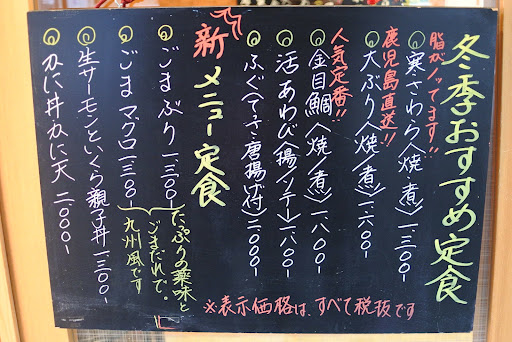 冬季おすすめ定食
脂がノッてます!!
◎寒さわら〈焼/煮〉一.三〇〇-
鹿児島直送!!
◎大ぶり〈焼/煮〉一.六〇〇-
人気定番!!
◎金目鯛〈焼/煮〉一.八〇〇-
◎活あわび〈揚/ソテー〉一.八〇〇-
◎ふぐてっさ唐揚げ付〉二.〇〇〇-
新メニュー定食
◎ごまぶり 一.三〇〇-
◎ごまマグロ 一.三〇〇-
たっぷりの薬味と
ごまだれで。
九州風です
◎生サーモンといくら親子丼 一.三〇〇-
◎かに丼かに天 二.〇〇〇-
※表示価格は、すべて税抜です